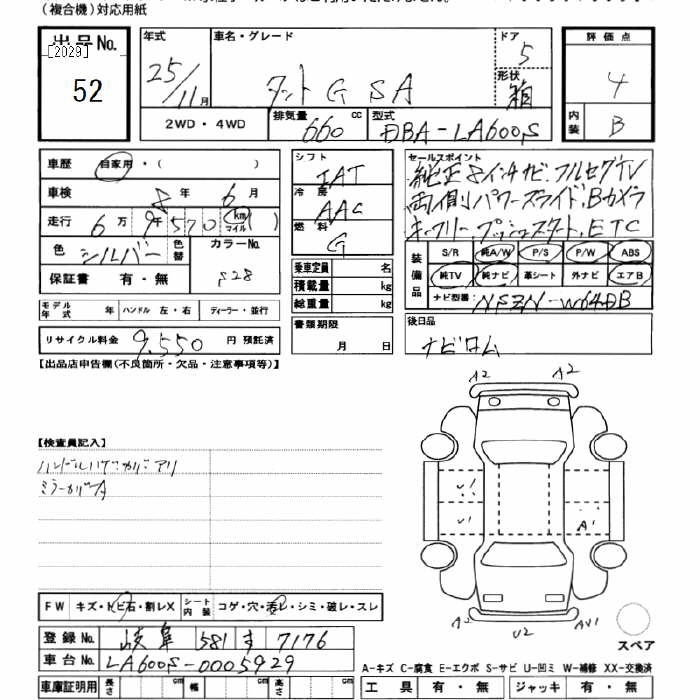 (複合機)対応用紙
出品No.
[2029]
52
年式
25/11月
車名・グレード
タント G SA
ドア
5
形状
箱
評価点
4
内装
B
2WD・4WD
排気量
660 cc
型式
DBA-LA600S
車歴
自家用・( )
車検
8年 6月
走行
6万9570 (km マイル)
色
シルバー
色替
カラーNo.
S28
保証書
有・無
モデル年式
年
ハンドル 左・右
ディーラー・並行
リサイクル料金
9,550 円 預託済
シフト
IAT
冷房
AAC
燃料
G
乗車定員 名
積載量 kg
総重量 kg
書類期限
月 日
セールスポイント
純正8インチナビ、フルセグTV
両側パワースライド、Bカメラ
キーフリープッシュスタート、ETC
装備品
S/R 純A/W P/S P/W ABS
純TV 純ナビ 革シート 外ナビ エアB
ナビ型番:
NSZN-W64DB
後日品
ナビロム
【出品店申告欄(不良箇所・欠品・注意事項等)】
【検査員記入】
ミラーカバーA
A2
A2
A1
A2
U2
AU1
スペア
FW
キズ・トビ石・割レX
シート内装
コゲ・穴・汚レ・シミ・破レ・スレ
登録No.
岐阜 581 す 7176
車台No.
LA600S-0005929
車庫証明用
長さ cm
幅 cm
高さ cm
A-キズ C-腐食 E-エクボ S-サビ U-凹ミ W-補修 XX-交換済
工具 有・無
ジャッキ 有・無